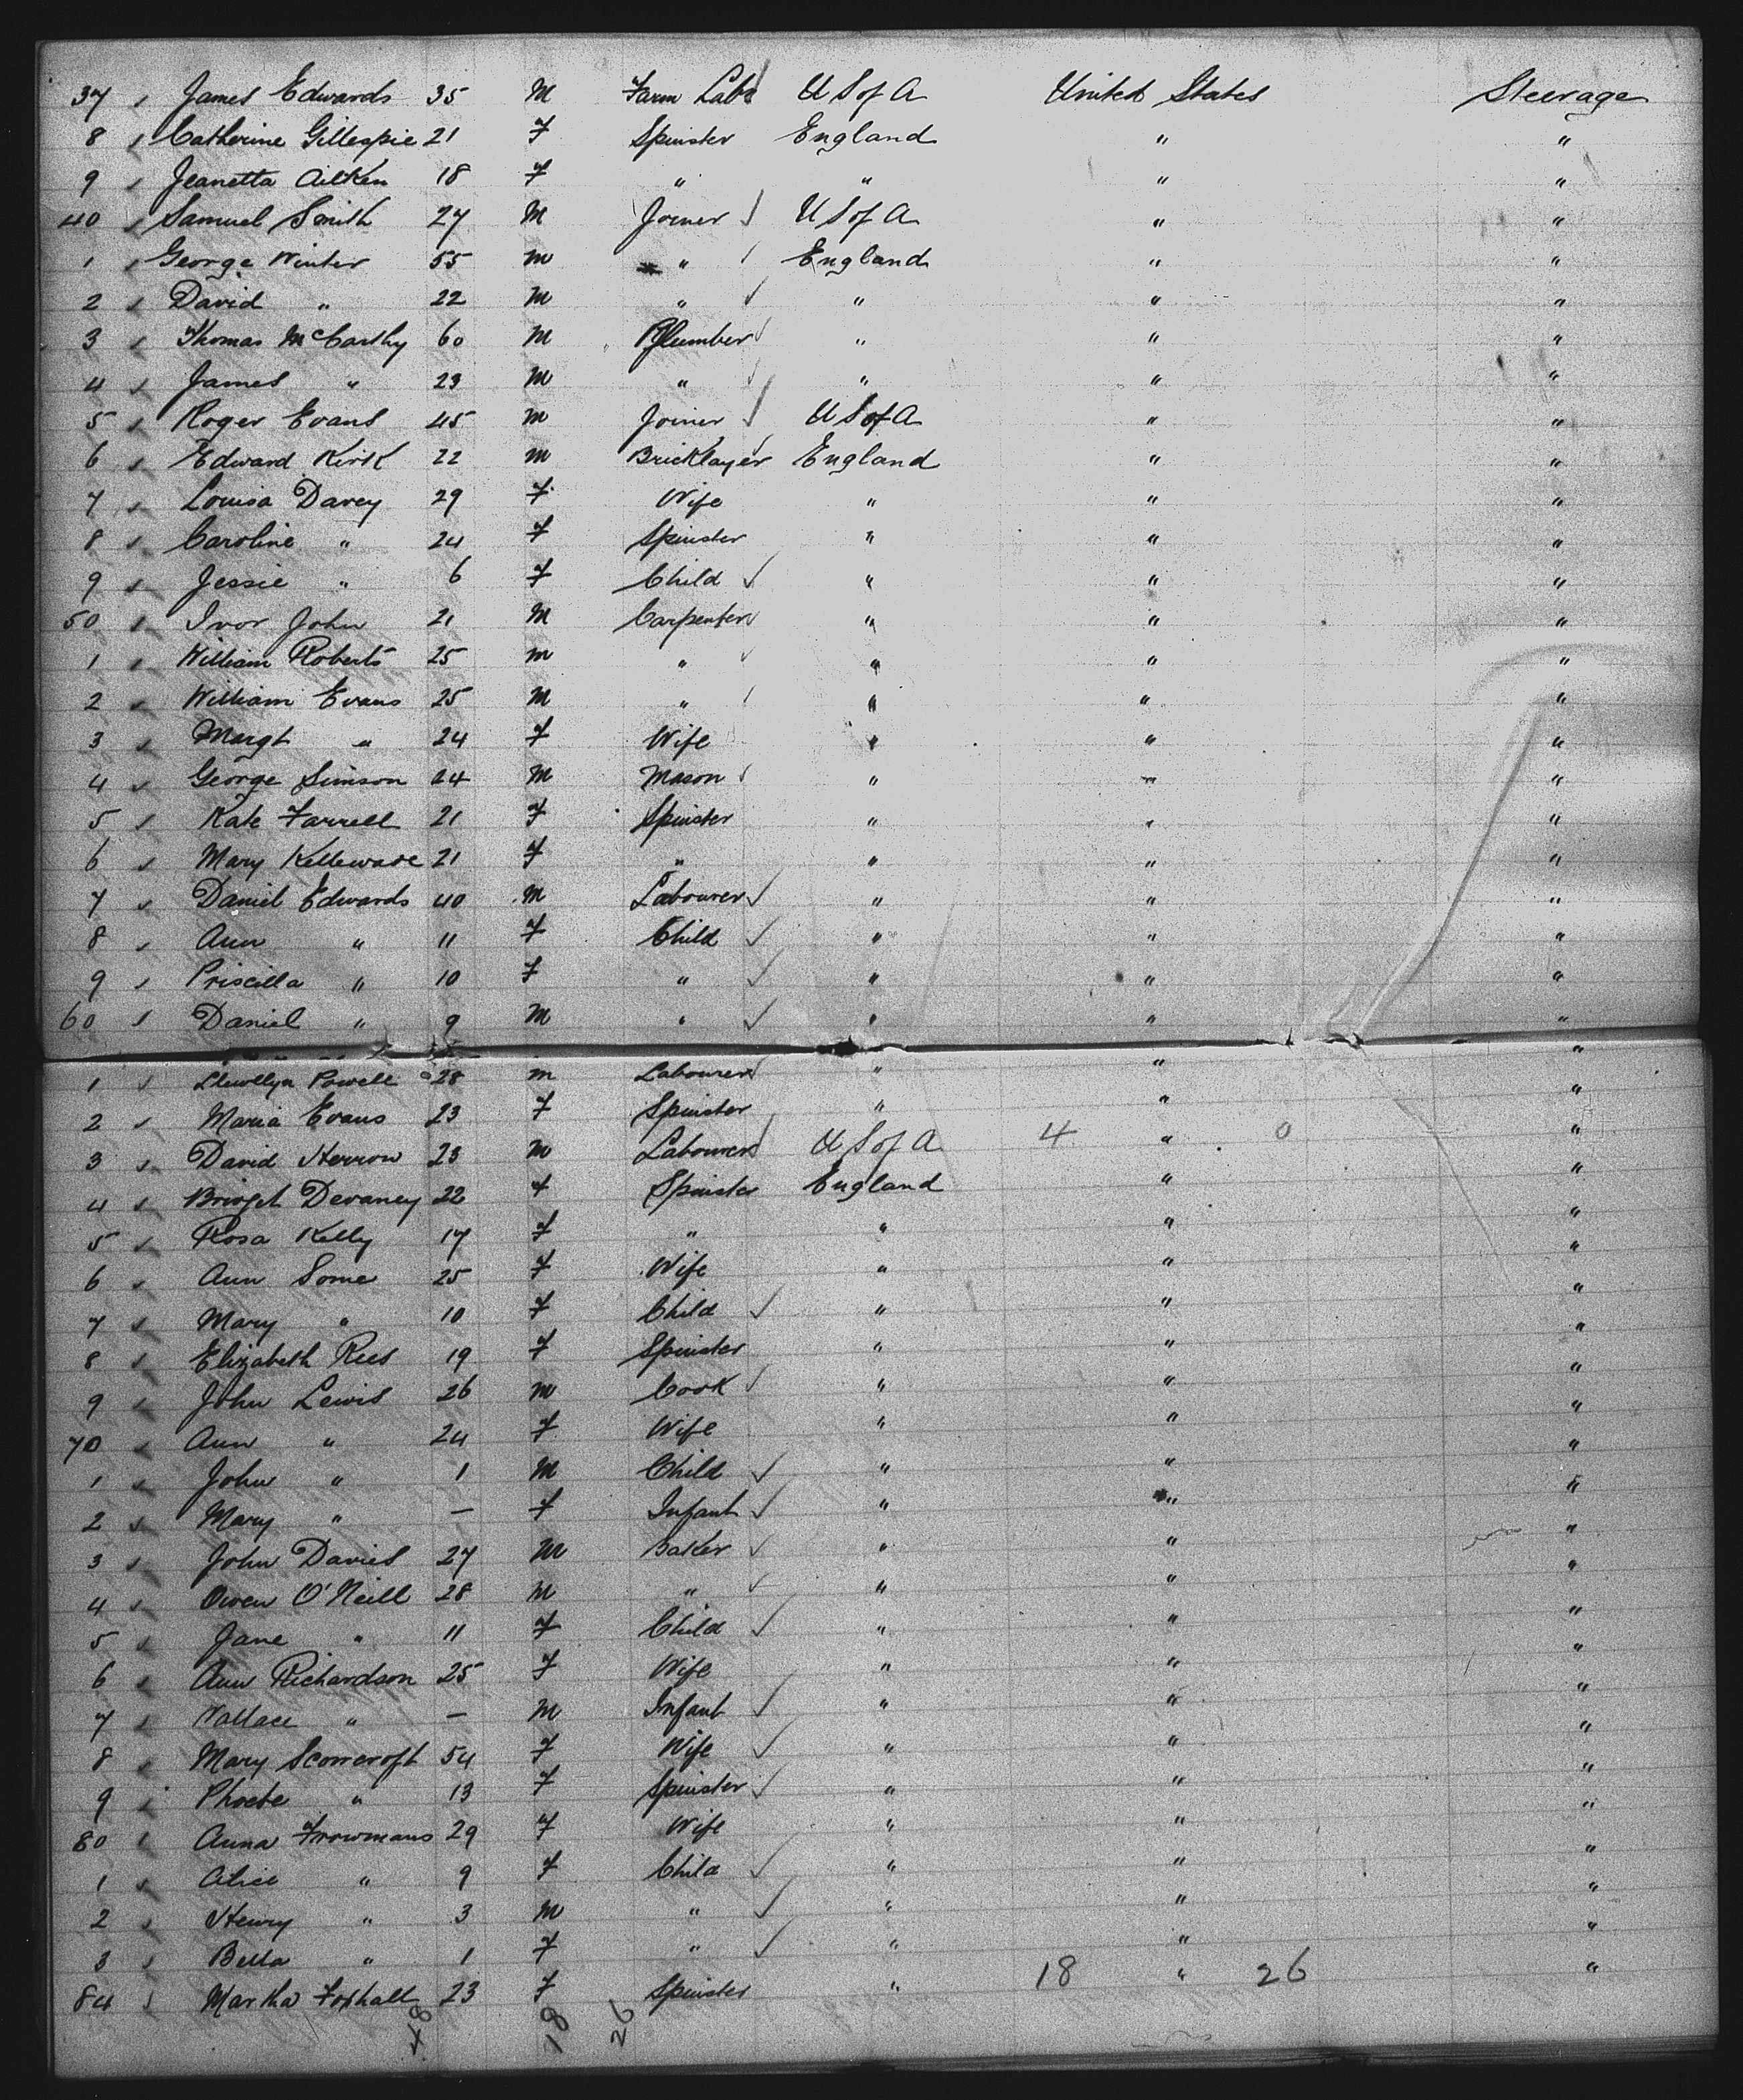 37 James Edwards 35 M Farm Labr U S of A United States Steerage
8 Catherine Gillespie 21 F Spinster England " "
9 Jeanetta Aitken 18 F " " " "
40 Samuel Smith 27 M Joiner U S of A " "
1 George Winter 55 M " England " "
2 David " 22 M " " " "
3 Thomas McCarthy 60 M Plumber " " "
4 James " 23 M " " " "
5 Roger Evans 45 M Joiner U S of A " "
6 Edward Kirk 22 M Bricklayer England " "
7 Louisa Davey 29 F Wife " " "
8 Caroline " 24 F Spinster " " "
9 Jessie " 6 F Child ✓ " " "
50 Ivor John 21 M Carpenter " " "
1 William Roberts 25 M " ✓ " " "
2 William Evans 25 M " " " "
3 Margt " 24 F Wife " " "
4 George Simson 24 M Mason " " "
5 Kate Farrell 21 F Spinster " " "
6 Mary 21 F " " " "
7 Daniel Edwards 40 M Labourer ✓ " " "
8 Ann " 11 F Child ✓ " " "
9 Priscilla " 10 F " ✓ " " "
60 Daniel " 9 M " ✓ " " "
1 Llewllyn Powell 28 M Labourer " " "
2 Maria Evans 23 F Spinster " " "
3 David Herron 23 M Labourer U S of A 4 " 0 "
4 Bridget Devaney 22 F Spinster England " "
5 Rosa Kelly 17 F " " " "
6 Ann Some 25 F Wife " " "
7 Mary " 10 F Child ✓ " " "
8 Elizabeth Rees 19 F Spinster " " "
9 John Lewis 26 M Cook ✓ " " "
70 Ann " 24 F Wife " " "
1 John " 1 M Child ✓ " " "
2 Mary " — F Infant ✓ " " "
3 John Davies 27 M Baker ✓ " " "
4 Owen O'Neill 28 M " ✓ " " "
5 Jane " 11 F Child ✓ " " "
6 Ann Richardson 25 F Wife " " "
7 Wallace " — M Infant ✓ " " "
8 Mary Scowcroft 54 F Wife ✓ " " "
9 Phoebe " 13 F Spinster ✓ " " "
80 Anna Frowmans 29 F Wife " " "
1 Alice " 9 F Child ✓ " " "
2 Henry " 3 M " ✓ " " "
3 Bella " 1 F " ✓ " " "
84 Martha Foxhall 23 F Spinster " 18 " 26 "
48 18 26